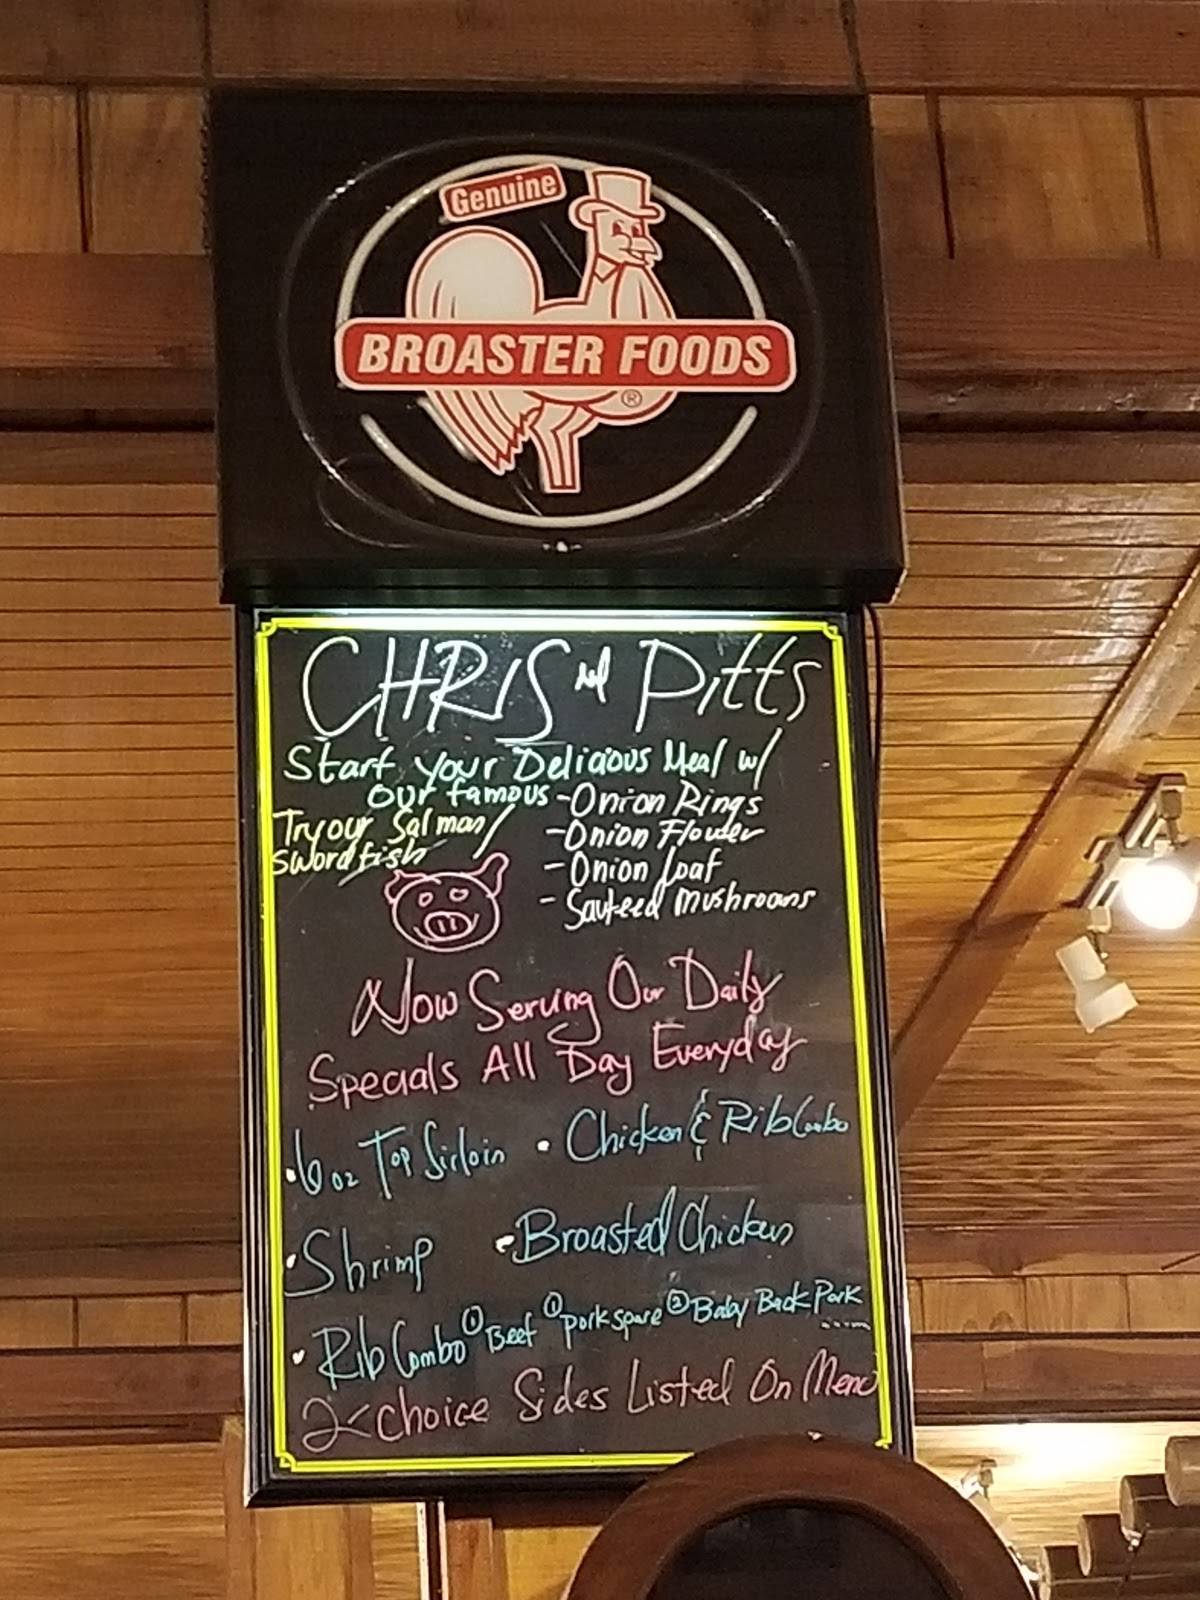 Genuine
BROASTER FOODS
®
CHRIS and Pitts
Start your Delicious Meal w/
our famous - Onion Rings
- Onion Flower
- Onion Loaf
- Sauteed Mushrooms
Try our Salmon/
Swordfish
Now Serving Our Daily
Specials All Day Everyday
• 6 oz Top Sirloin • Chicken & Rib Combo
• Shrimp • Broasted Chicken
• Rib Combo ① Beef ① pork spare ② Baby Back Pork
2 choice Sides Listed On Menu